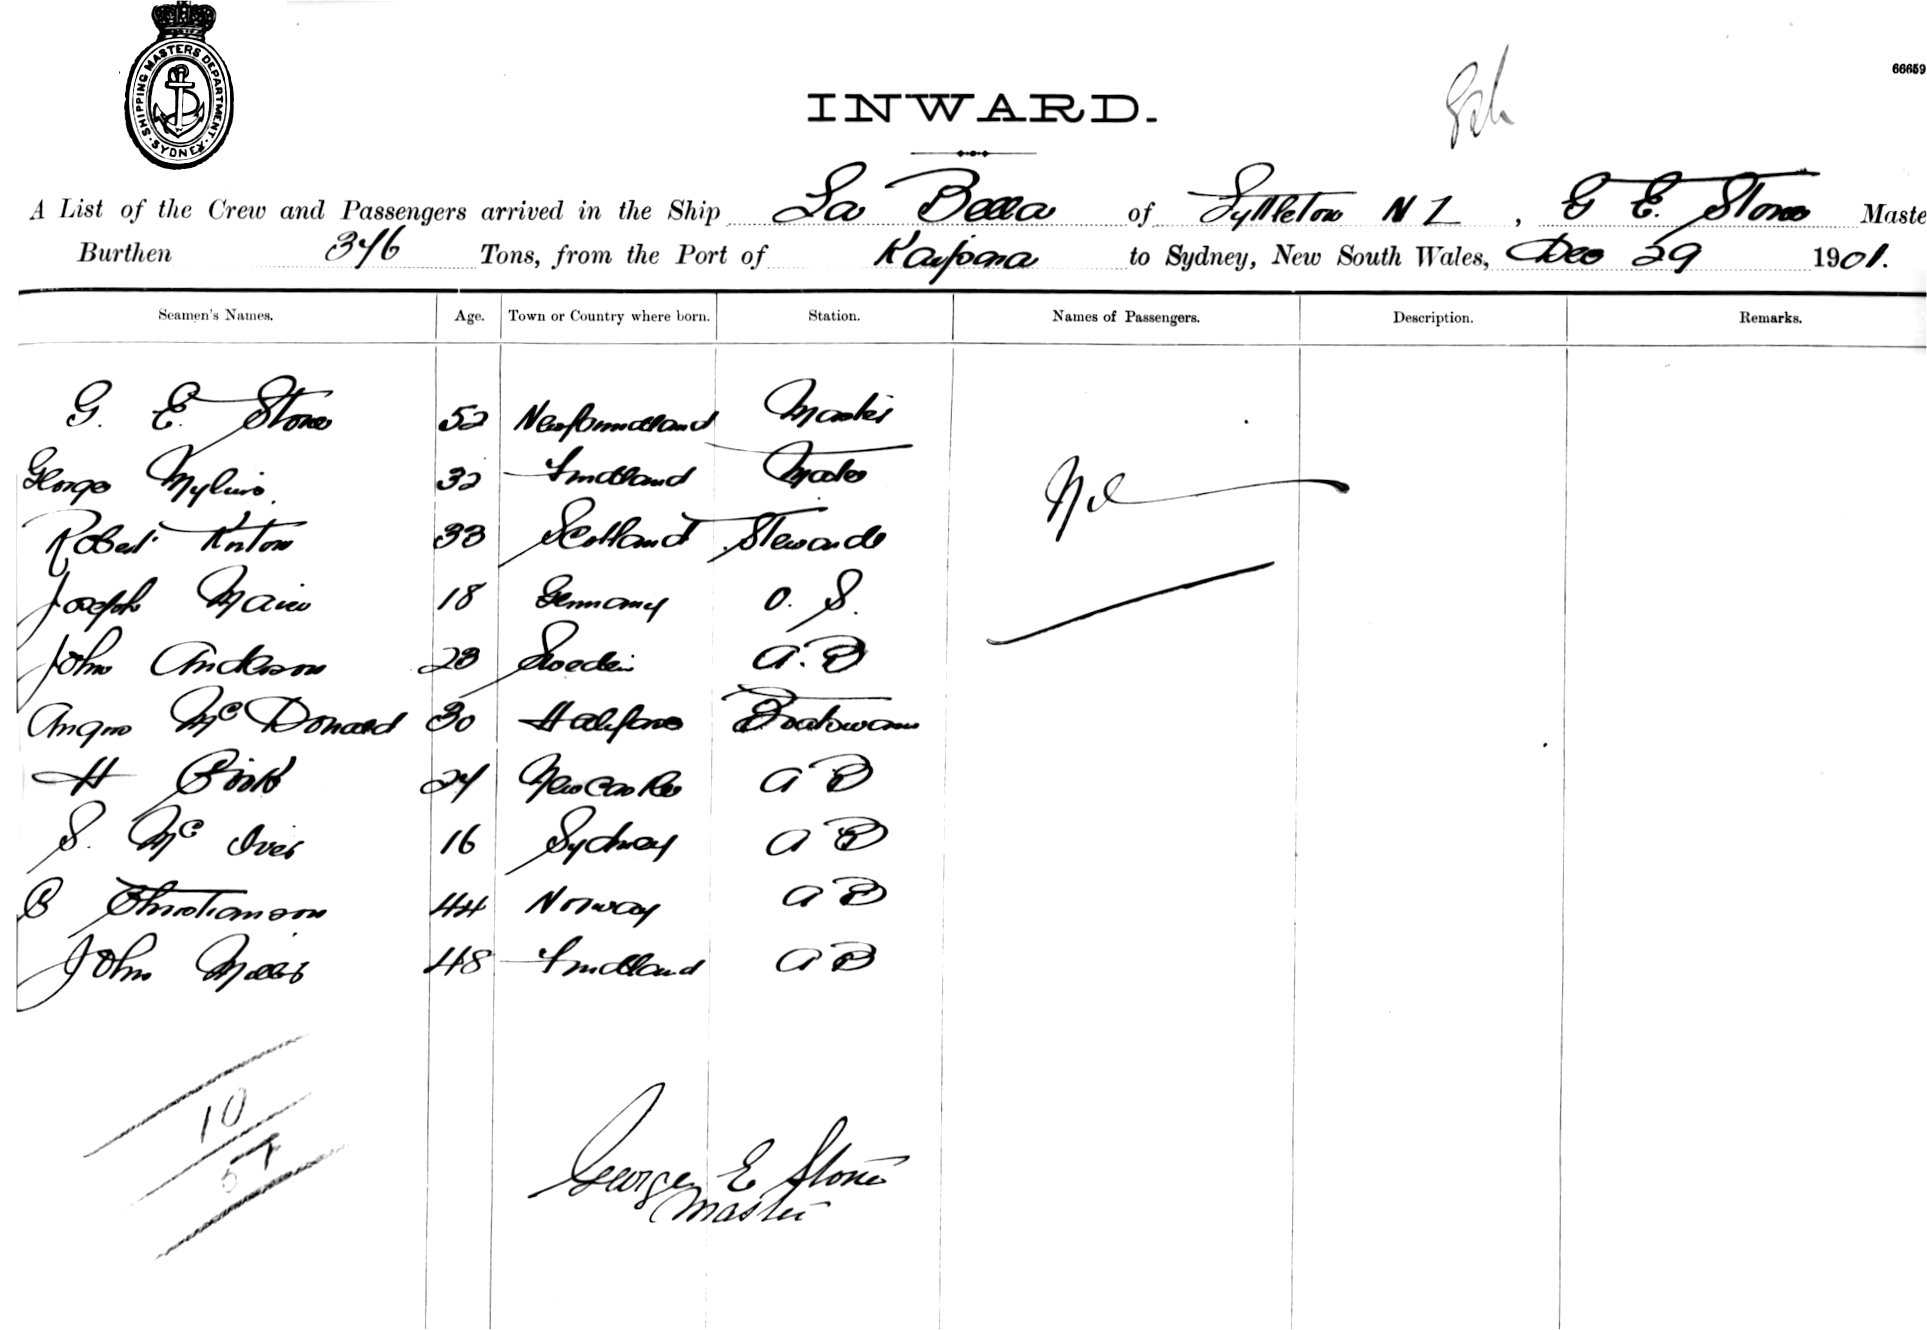 SHIPPING MASTERS DEPARTMENT
SYDNEY
66659
INWARD.
A List of the Crew and Passengers arrived in the Ship La Bella of Lyttleton N Z, G E. Stone Maste
Burthen 346 Tons, from the Port of Kaipara to Sydney, New South Wales, Dec 29 1901.
Seamen's Names. Age. Town or Country where born. Station. Names of Passengers. Description. Remarks.
G. E. Stone 52 Newfoundland Master
George Mylius 32 Findland Mate Nil
Robert 33 Scotland Steward
Joseph 18 Germany O. S.
John Anderson 28 Sweden A. B
Angus McDonald 30 Halifax
H 24 Newcastle A B
S. McIver 16 Sydney A B
C Christianson 44 Norway A B
John 48 Findland A B
10
George E Stone
Master